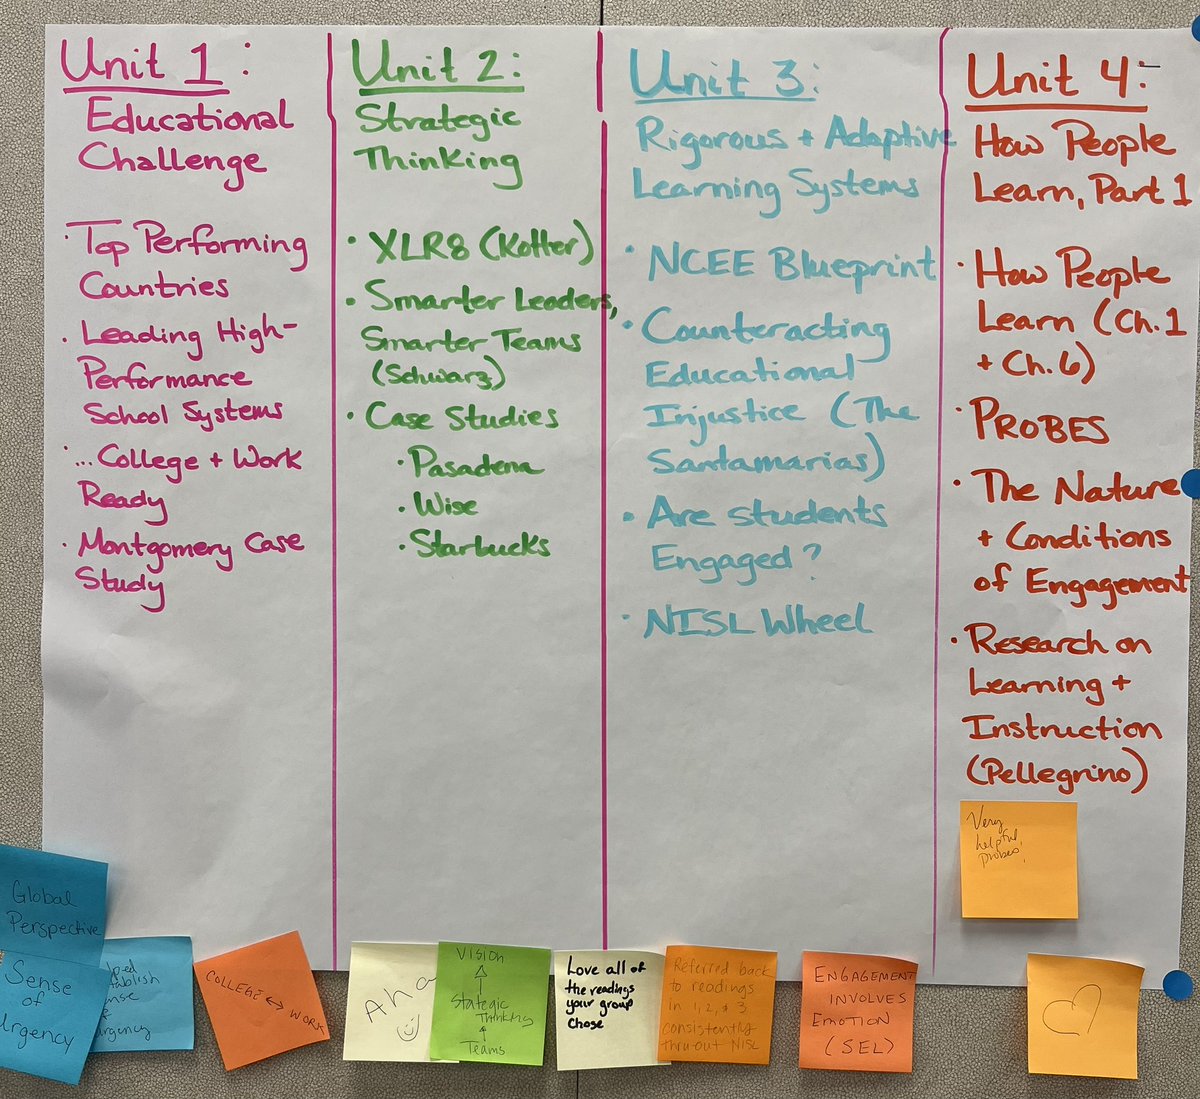 Unit 1:
Educational
Challenge
· Top Performing
Countries
· Leading High-
Performance
School Systems
· ...College + Work
Ready
· Montgomery Case
Study
Unit 2:
Strategic
Thinking
· XLR8 (Kotter)
· Smarter Leaders,
Smarter Teams
(Schwarz)
· Case Studies
· Pasadena
· Wise
· Starbucks
Unit 3:
Rigorous + Adaptive
Learning Systems
· NCEE Blueprint
· Counteracting
Educational
Injustice (The
Santamarias)
· Are students
Engaged?
· NISL Wheel
Unit 4:
How People
Learn, Part 1
· How People
Learn (Ch. 1
+ Ch. 6)
· PROBES
· The Nature
+ Conditions
of Engagement
· Research on
Learning +
Instruction
(Pellegrino)
Very
helpful
probes!
Global
Perspective
Sense
of
Urgency
COLLEGE ↔ WORK
Aha
VISION
↑
Stategic
Thinking
↑
Teams
Love all of
the readings
your group
chose
Referred back
to readings
in 1, 2, + 3
consistently
thru-out NISL
ENGAGEMENT
INVOLVES
EMOTION
(SEL)